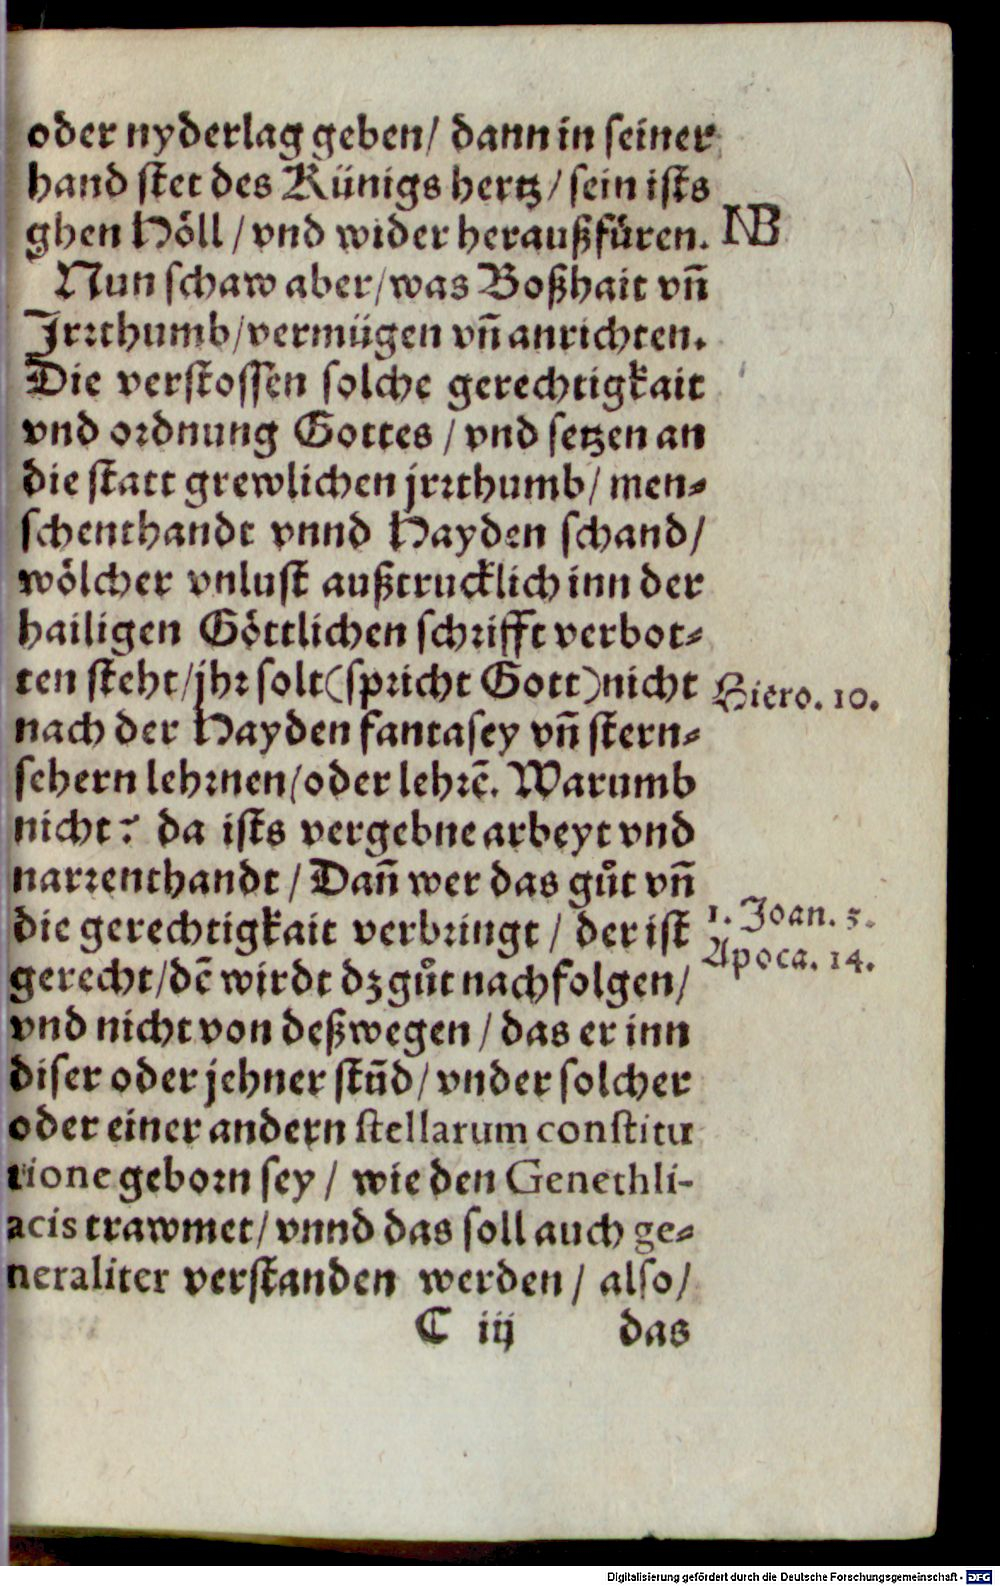 oder nyderlag geben/ dann in seiner
hand stet des Künigs hertz/ sein ists
ghen Höll/ vnd wider heraußfüren. NB
Nun schaw aber/ was Boßhait vñ
Jrꝛthumb/ vermügen vñ anrichten.
Die verstossen solche gerechtigkait
vnd oꝛdnung Gottes/ vnd setzen an
die statt grewlichen jrꝛthumb/ men⸗
schenthandt vnnd Hayden schand/
wölcher vnlust außtrucklich inn der
hailigen Göttlichen schꝛifft verbot⸗
ten steht/ jhꝛ solt (spꝛicht Gott) nicht
Hiero. 10.
nach der Hayden fantasey vñ stern⸗
sehern lehꝛnen/ oder lehꝛẽ. Warumb
nicht? da ists vergebne arbeyt vnd
narꝛenthandt/ Dañ wer das gůt vñ
die gerechtigkait verbꝛingt/ der ist
1. Joan. 5.
Apoca. 14.
gerecht/ dẽ wirdt dz gůt nachfolgen/
vnd nicht von deßwegen/ das er inn
diser oder jehner stũd/ vnder solcher
oder einer andern stellarum constitu
tione geboꝛn sey/ wie den Genethli-
acis trawmet/ vnnd das soll auch ge⸗
neraliter verstanden werden/ also/
C iij das
Digitalisierung gefördert durch die Deutsche Forschungsgemeinschaft - DFG